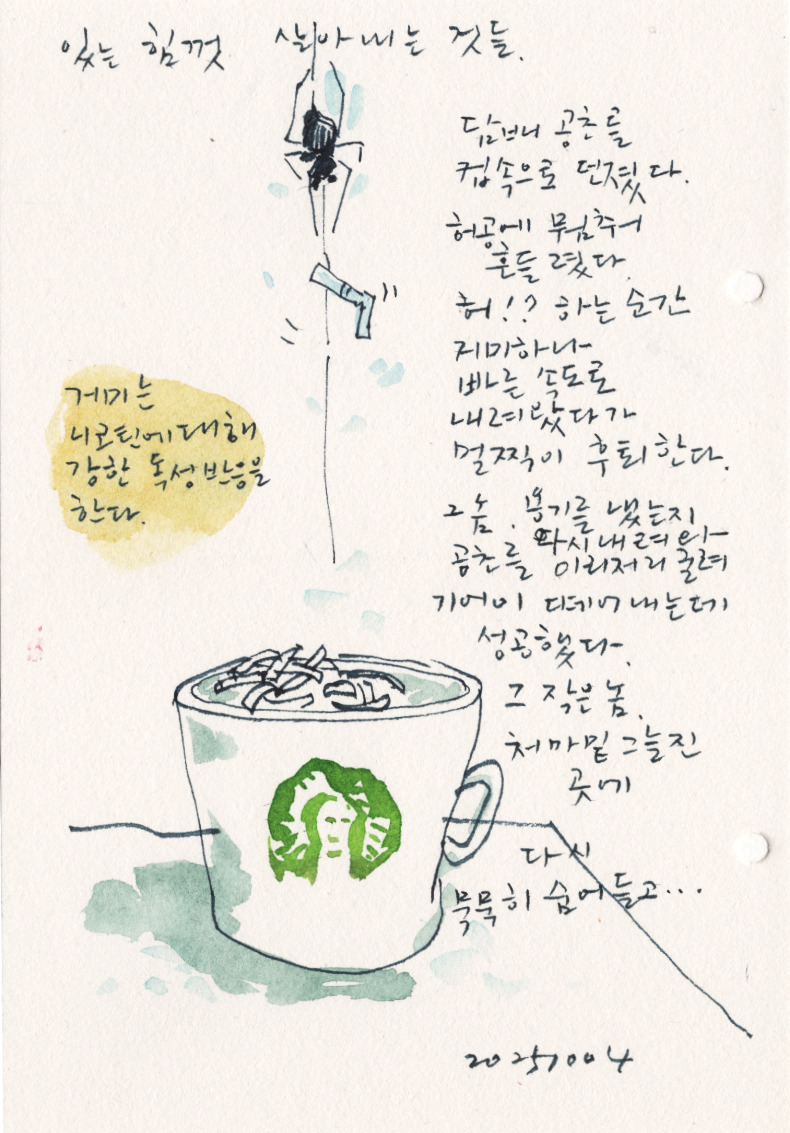 있는 힘껏 살아내는 것들.
담브니 공초를
컵속으로 던졌다.
허공에 뭠추어
흔들렸다.
허!? 하는 순간
거미하나
빠른 속도로
내려왔다가
멀찍이 후퇴한다.
그놈, 용기를 냈는지
다시 내려와
공초를 이리저리 굴려
기어이 떼어내는데
성공했다.
그 작은 놈,
처마밑 그늘진
곳에
다시
묵묵히 숨어들고...
거미는
니코틴에 대해
강한 독성반응을
한다.
20251004